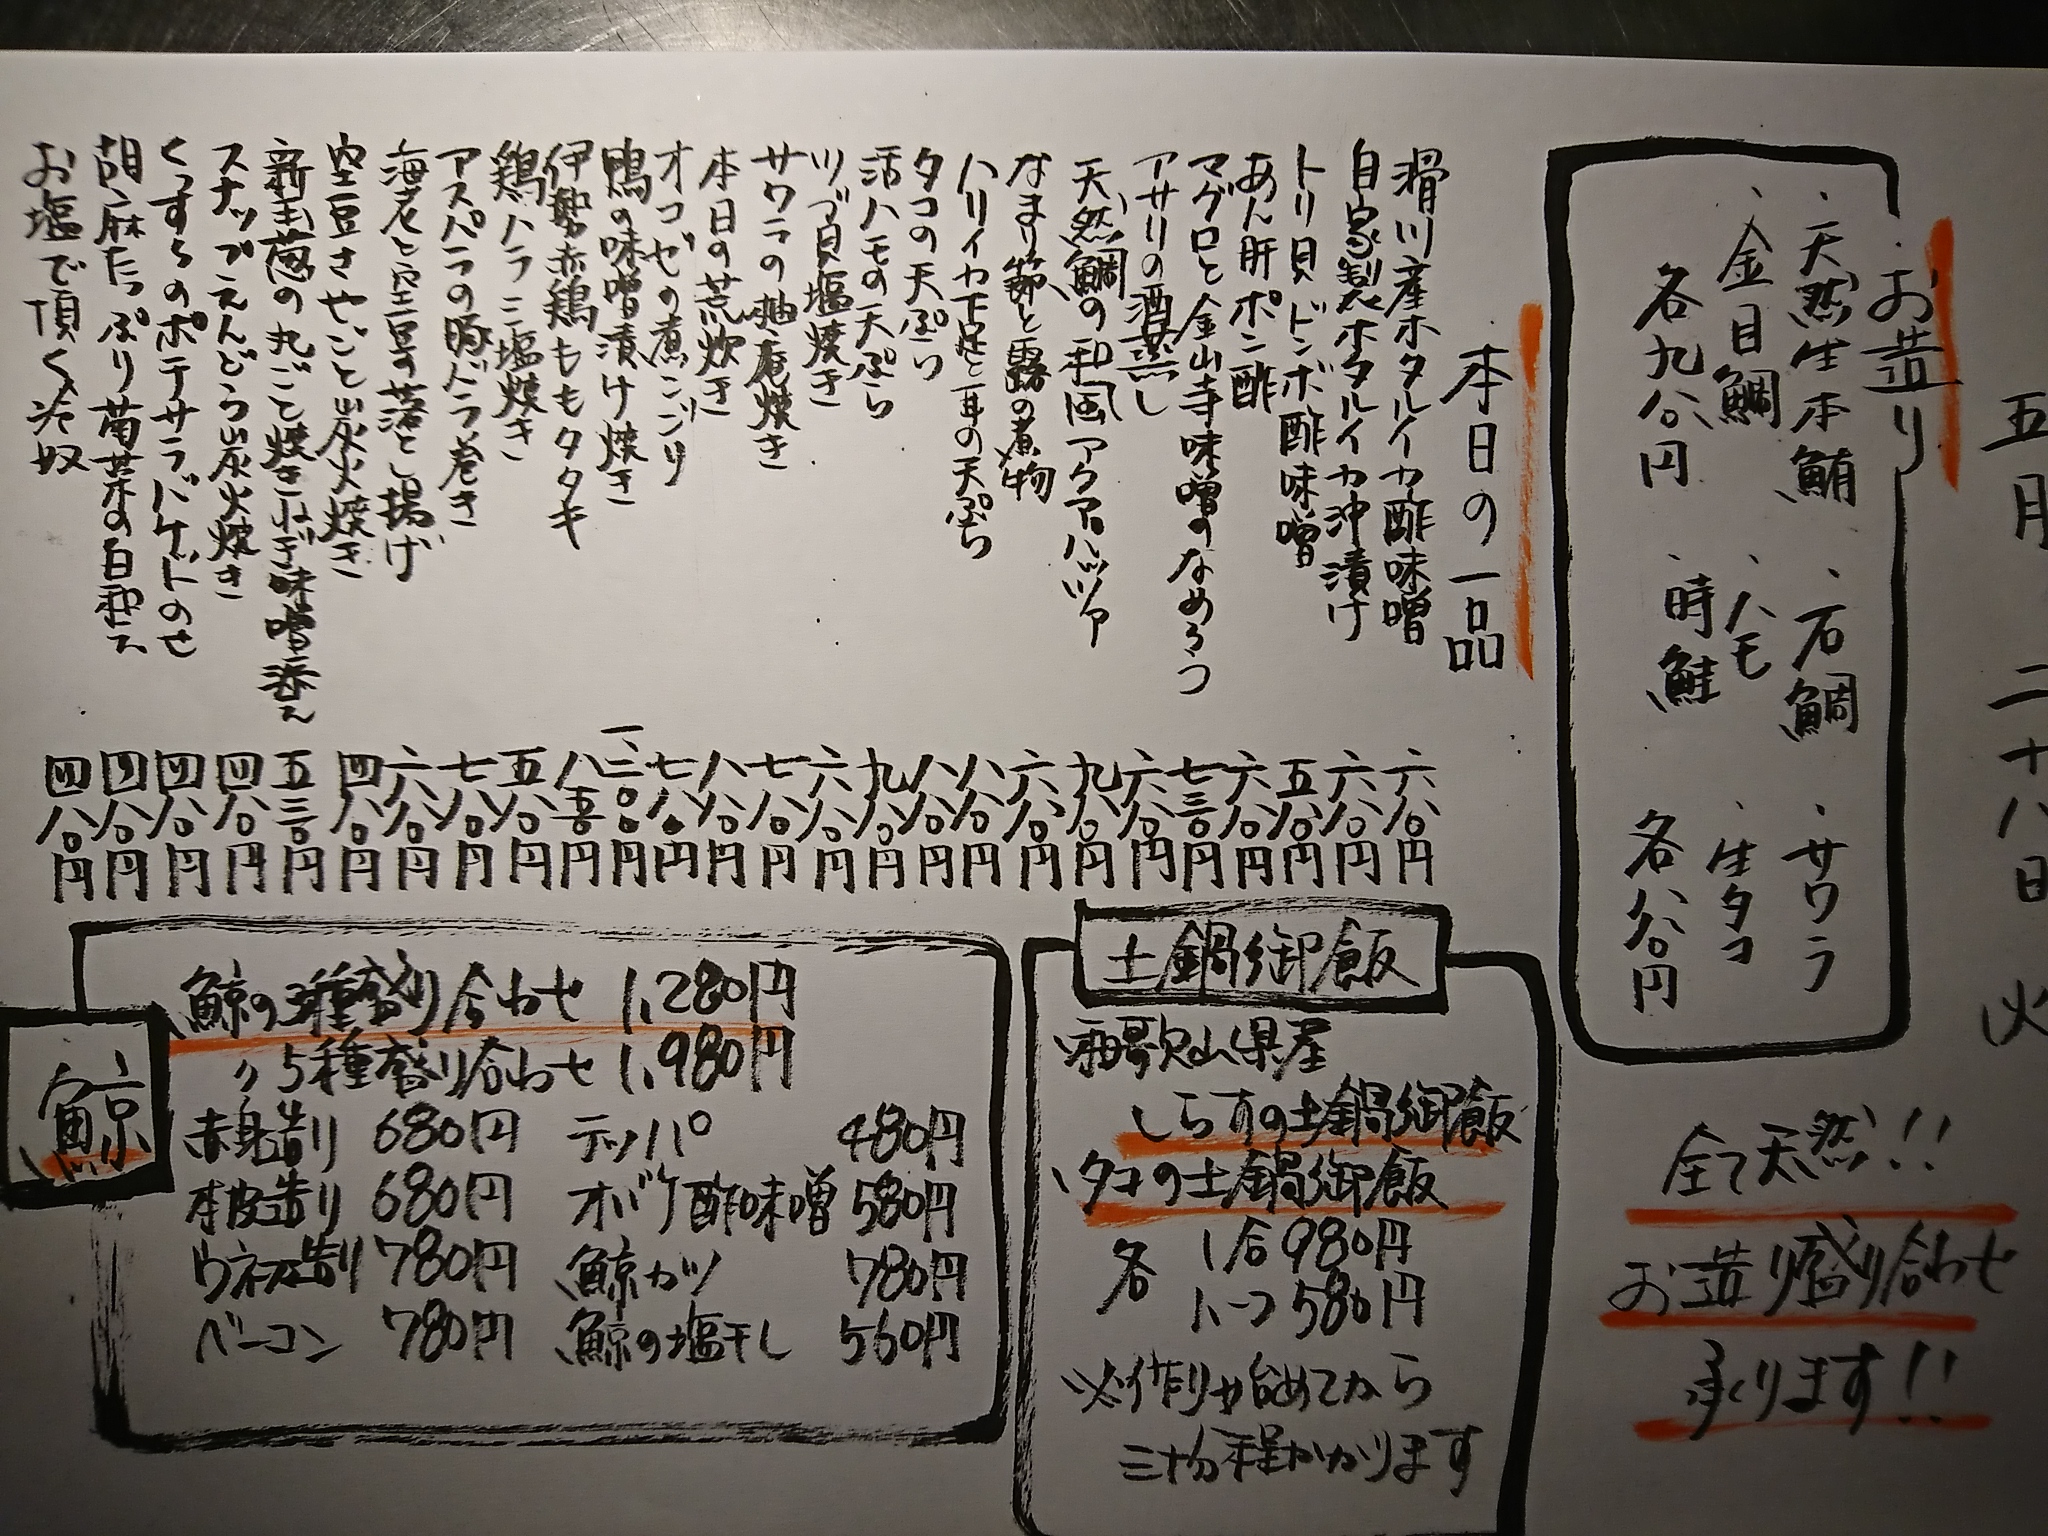 五月二十八日 火
お造り
・天然生本鮪 ・石鯛 ・サワラ
・金目鯛 ・ハモ ・生タコ
各九八〇円 時鮭 各八八〇円
全て天然!!
お造り盛り合わせ
承ります!!
本日の一品
滑川産ホタルイカ酢味噌 六八〇円
自家製ホタルイカ沖漬け 六八〇円
トリ貝ドンボ酢味噌 五八〇円
あん肝ポン酢 六八〇円
マグロと金山寺味噌のなめろう 七三〇円
アサリの酒蒸し 六八〇円
天然鯛の和風アクアパッツァ 九八〇円
なまり節と露の煮物 六八〇円
ハリイカ下足と耳の天ぷら 八八〇円
タコの天ぷら 八八〇円
活ハモの天ぷら 九八〇円
ツブ貝塩焼き 六八〇円
サワラの柚庵焼き 七八〇円
本日の荒炊き 八八〇円
オコゼの煮こごり 七八〇円
鴨の味噌漬け焼き 一、二〇〇円
伊勢赤鶏ももタタキ 八五〇円
鶏ハラミ塩焼き 五八〇円
アスパラの豚バラ巻き 七八〇円
海老と空豆の落とし揚げ 六八〇円
空豆さやごと炭火焼き 四八〇円
新玉葱の丸ごと焼きねぎ味噌添え 五三〇円
スナップえんどう炭火焼き 四八〇円
くんすものポテサラバケットのせ 四八〇円
胡麻たっぷり菊菜の白和え 四八〇円
お塩で頂く冷奴 四八〇円
土鍋御飯
和歌山県産
しらすの土鍋御飯
タコの土鍋御飯
各 1合980円
ハーフ580円
※作り始めてから
三十分程かかります
鯨
鯨の3種盛り合わせ 1,280円
〃5種盛り合わせ 1,980円
赤身造り 680円 テッパ 480円
本皮造り 680円 オバケ酢味噌 580円
ウネス造り 780円 鯨カツ 780円
ベーコン 780円 鯨の塩干し 560円